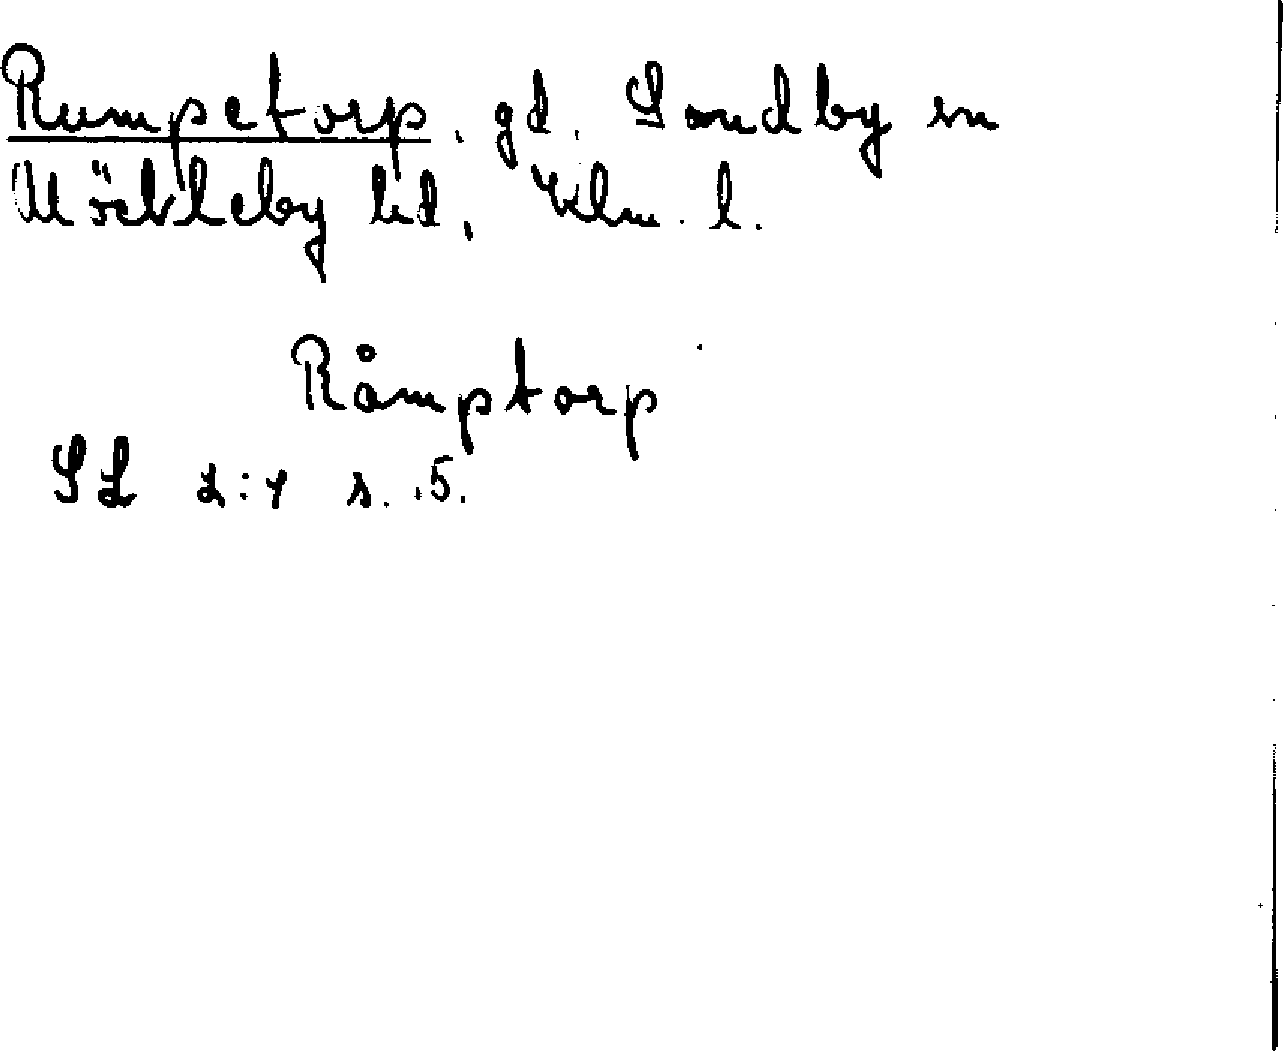 Rumpetorp, gd, Sandby sn
Möckleby hd, Klm. l.
Råmptorp
SL 2:1 s. 5.